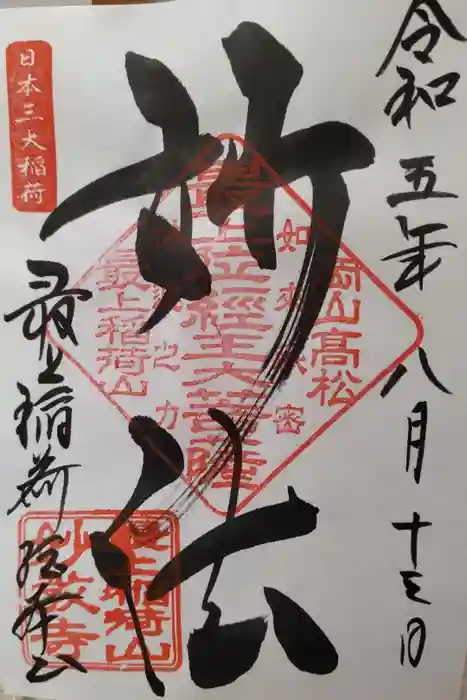 令和五年八月十三日
妙法
日本三大稲荷
最上稲荷 総本山
岡山高松
如来秘密
最上位經王大菩薩
神通之力
最上稲荷山
最上稲荷山
妙教寺